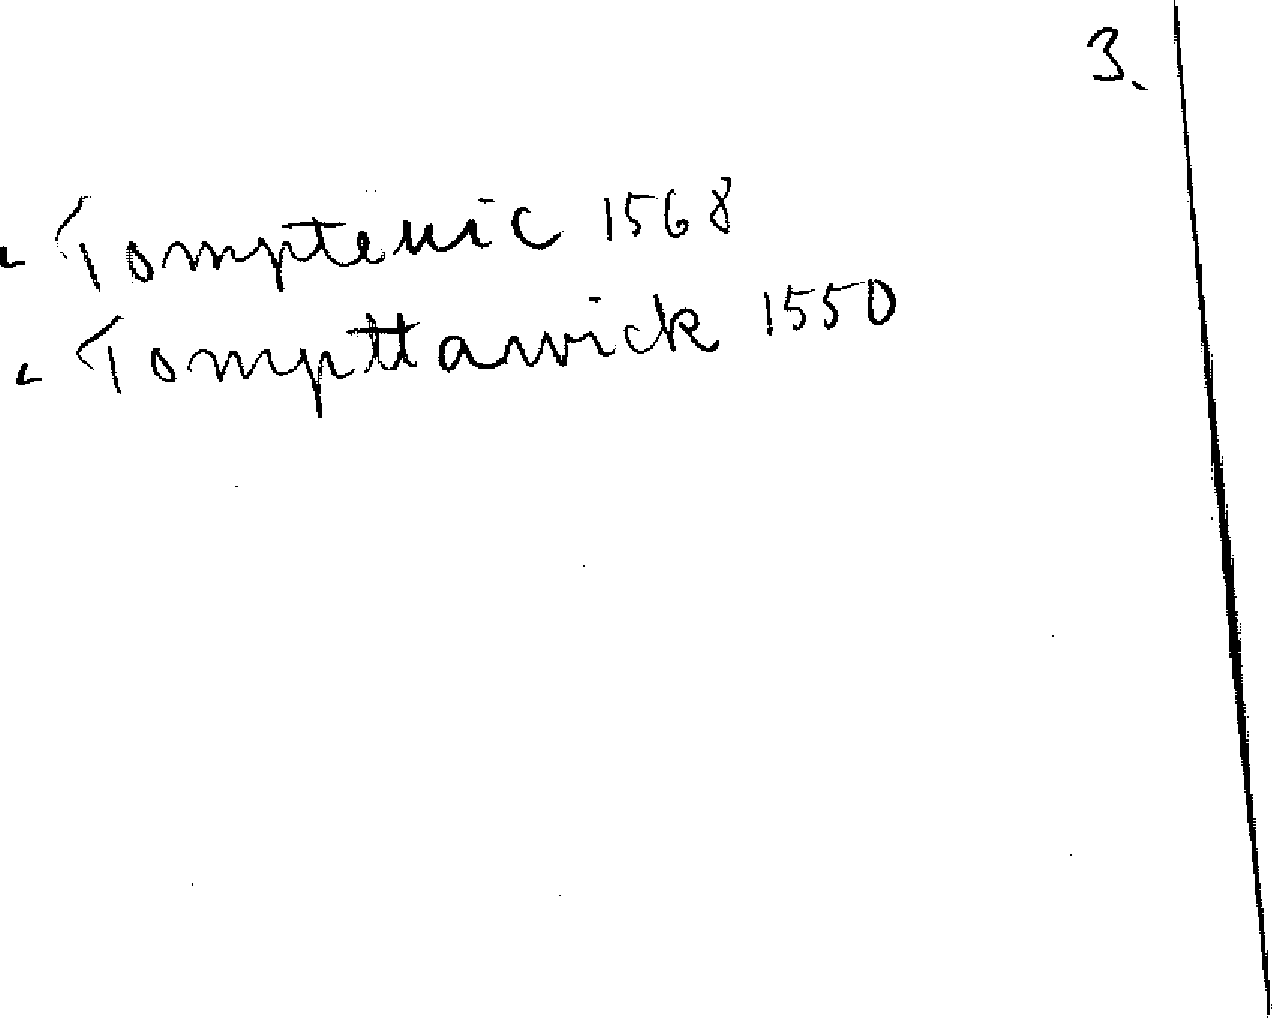 3.
Tomptewic 1568
Tompttarvick 1550